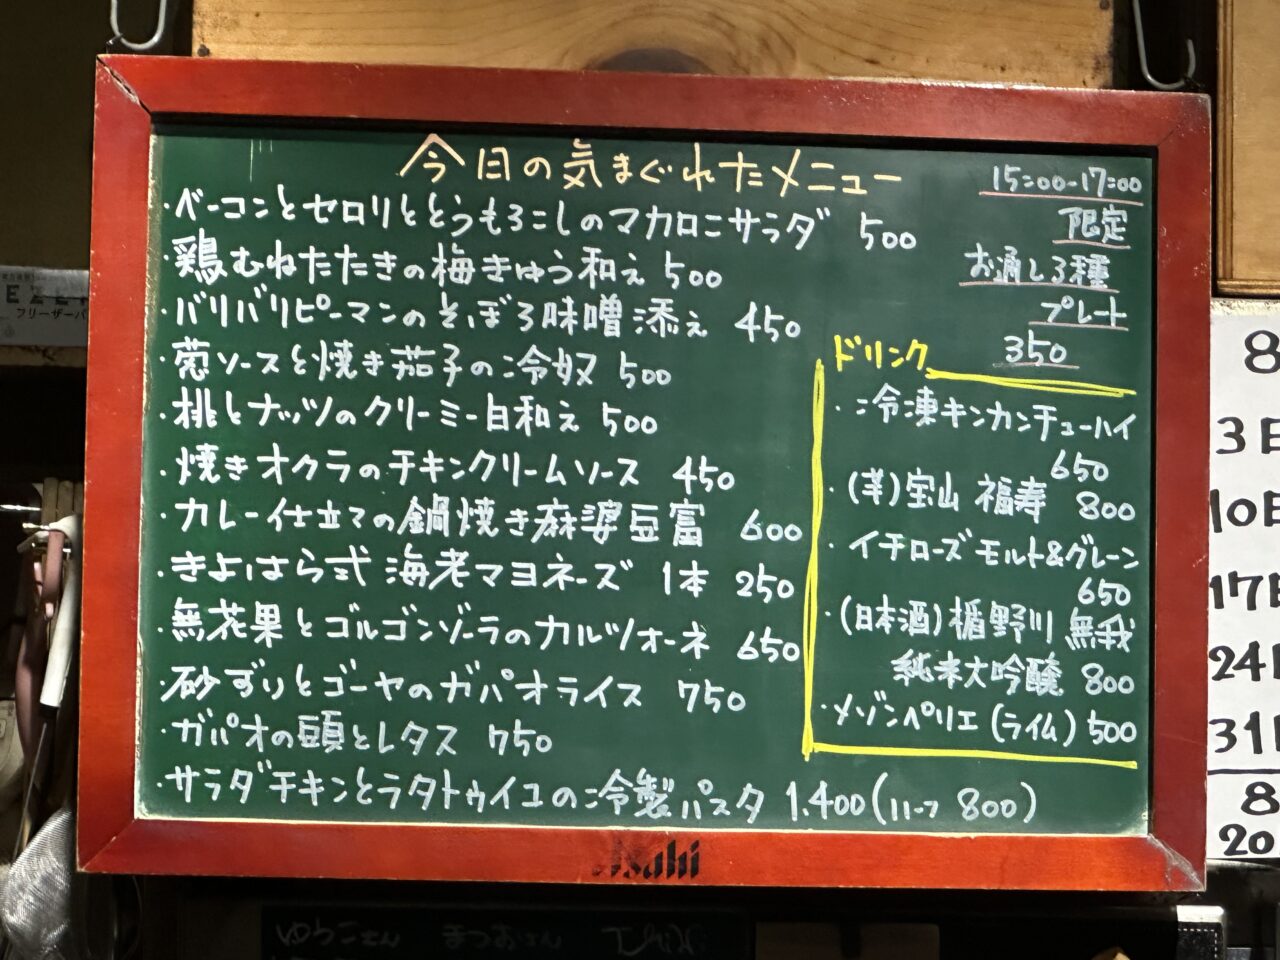 今日の気まぐれたメニュー
・ベーコンとセロリととうもろこしのマカロニサラダ 500
・鶏むねたたきの梅きゅう和え 500
・バリバリピーマンのそぼろ味噌添え 450
・葱ソースと焼き茄子の冷奴 500
・桃とナッツのクリーミー白和え 500
・焼きオクラのチキンクリームソース 450
・カレー仕立ての鍋焼き麻婆豆富 600
・きよはら式 海老マヨネーズ 1本 250
・無花果とゴルゴンゾーラのカルツォーネ 650
・砂ずりとゴーヤのガパオライス 750
・ガパオの頭とレタス 750
・サラダチキンとラタトゥイユの冷製パスタ 1.400(ハーフ 800)
15:00-17:00
限定
お通し3種
プレート
350
ドリンク
・冷凍キンカンチューハイ
650
・(芋)宝山 福寿 800
・イチローズモルト&グレーン
650
・(日本酒)楯野川 無我
純米大吟醸 800
・メゾンペリエ(ライム) 500
Asahi
フリーザーバ
8
3日
10日
17日
24日
31日
8
20